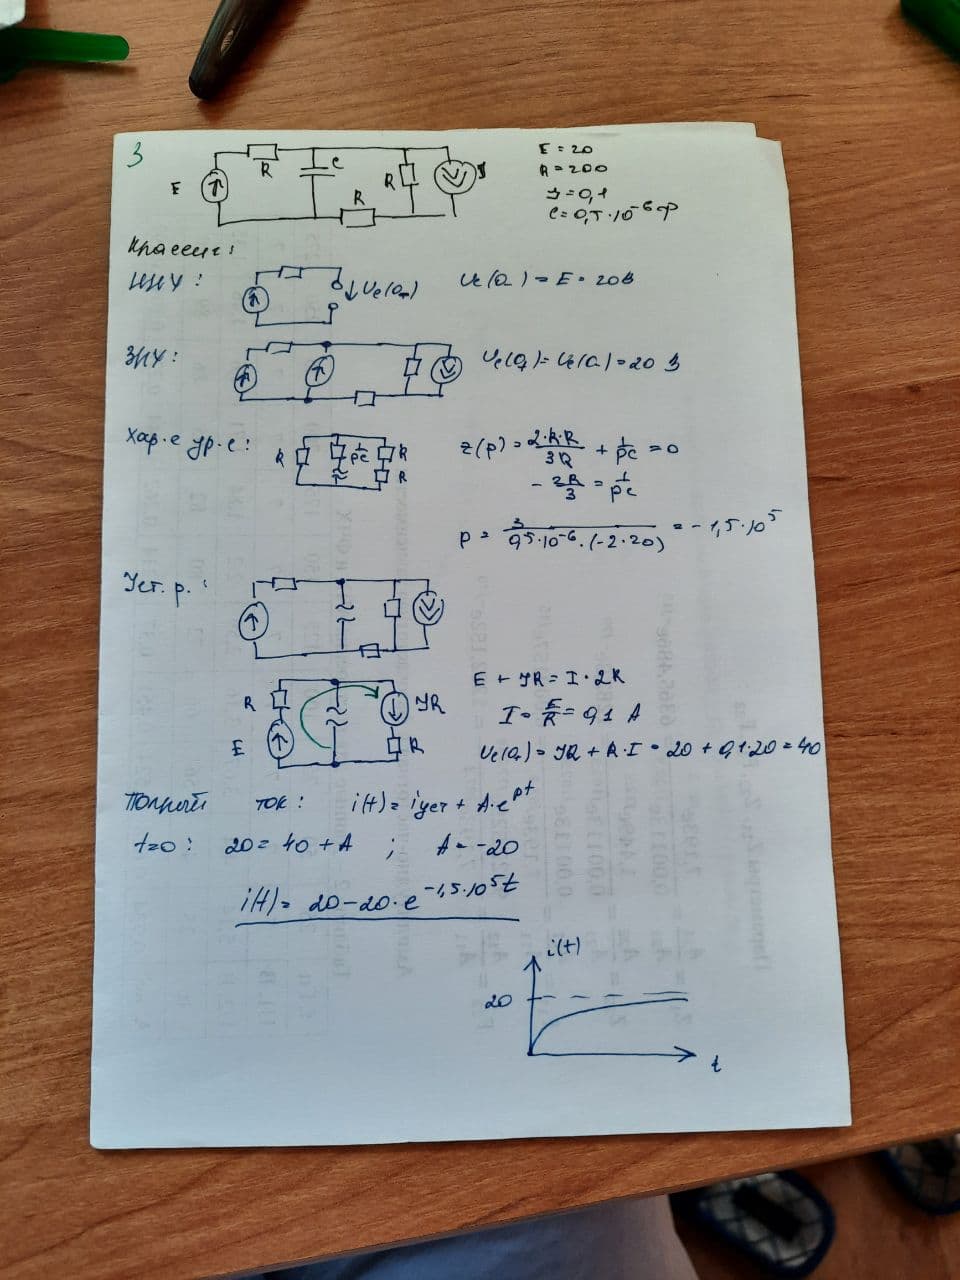 3
E = 20
R = 200
J = 0,1
C = 0,5·10⁻⁶ ф
E R C R R J
ННУ: Uc(0-) Uc(0-) = E = 20В
ЗНУ: Uc(0+) = Uc(0-) = 20 В
Хар-е ур-е: R 1/pC R R Z(p) = 2·R·R/3R + 1/pC = 0
- 2R/3 = 1/pC
p = 3/0,5·10⁻⁶·(-2·20) = -1,5·10⁵
Уст. р.:
R JR E + JR = I·2R
E R I = E/R = 0,1 A
Uc(0+) = JR + R·I = 20 + 0,1·20 = 40
Полный ток: i(t) = iуст + A·e^pt
t=0: 20 = 40 + A ; A = -20
i(t) = 20-20·e^-1,5·10⁵t
i(t)
20
t